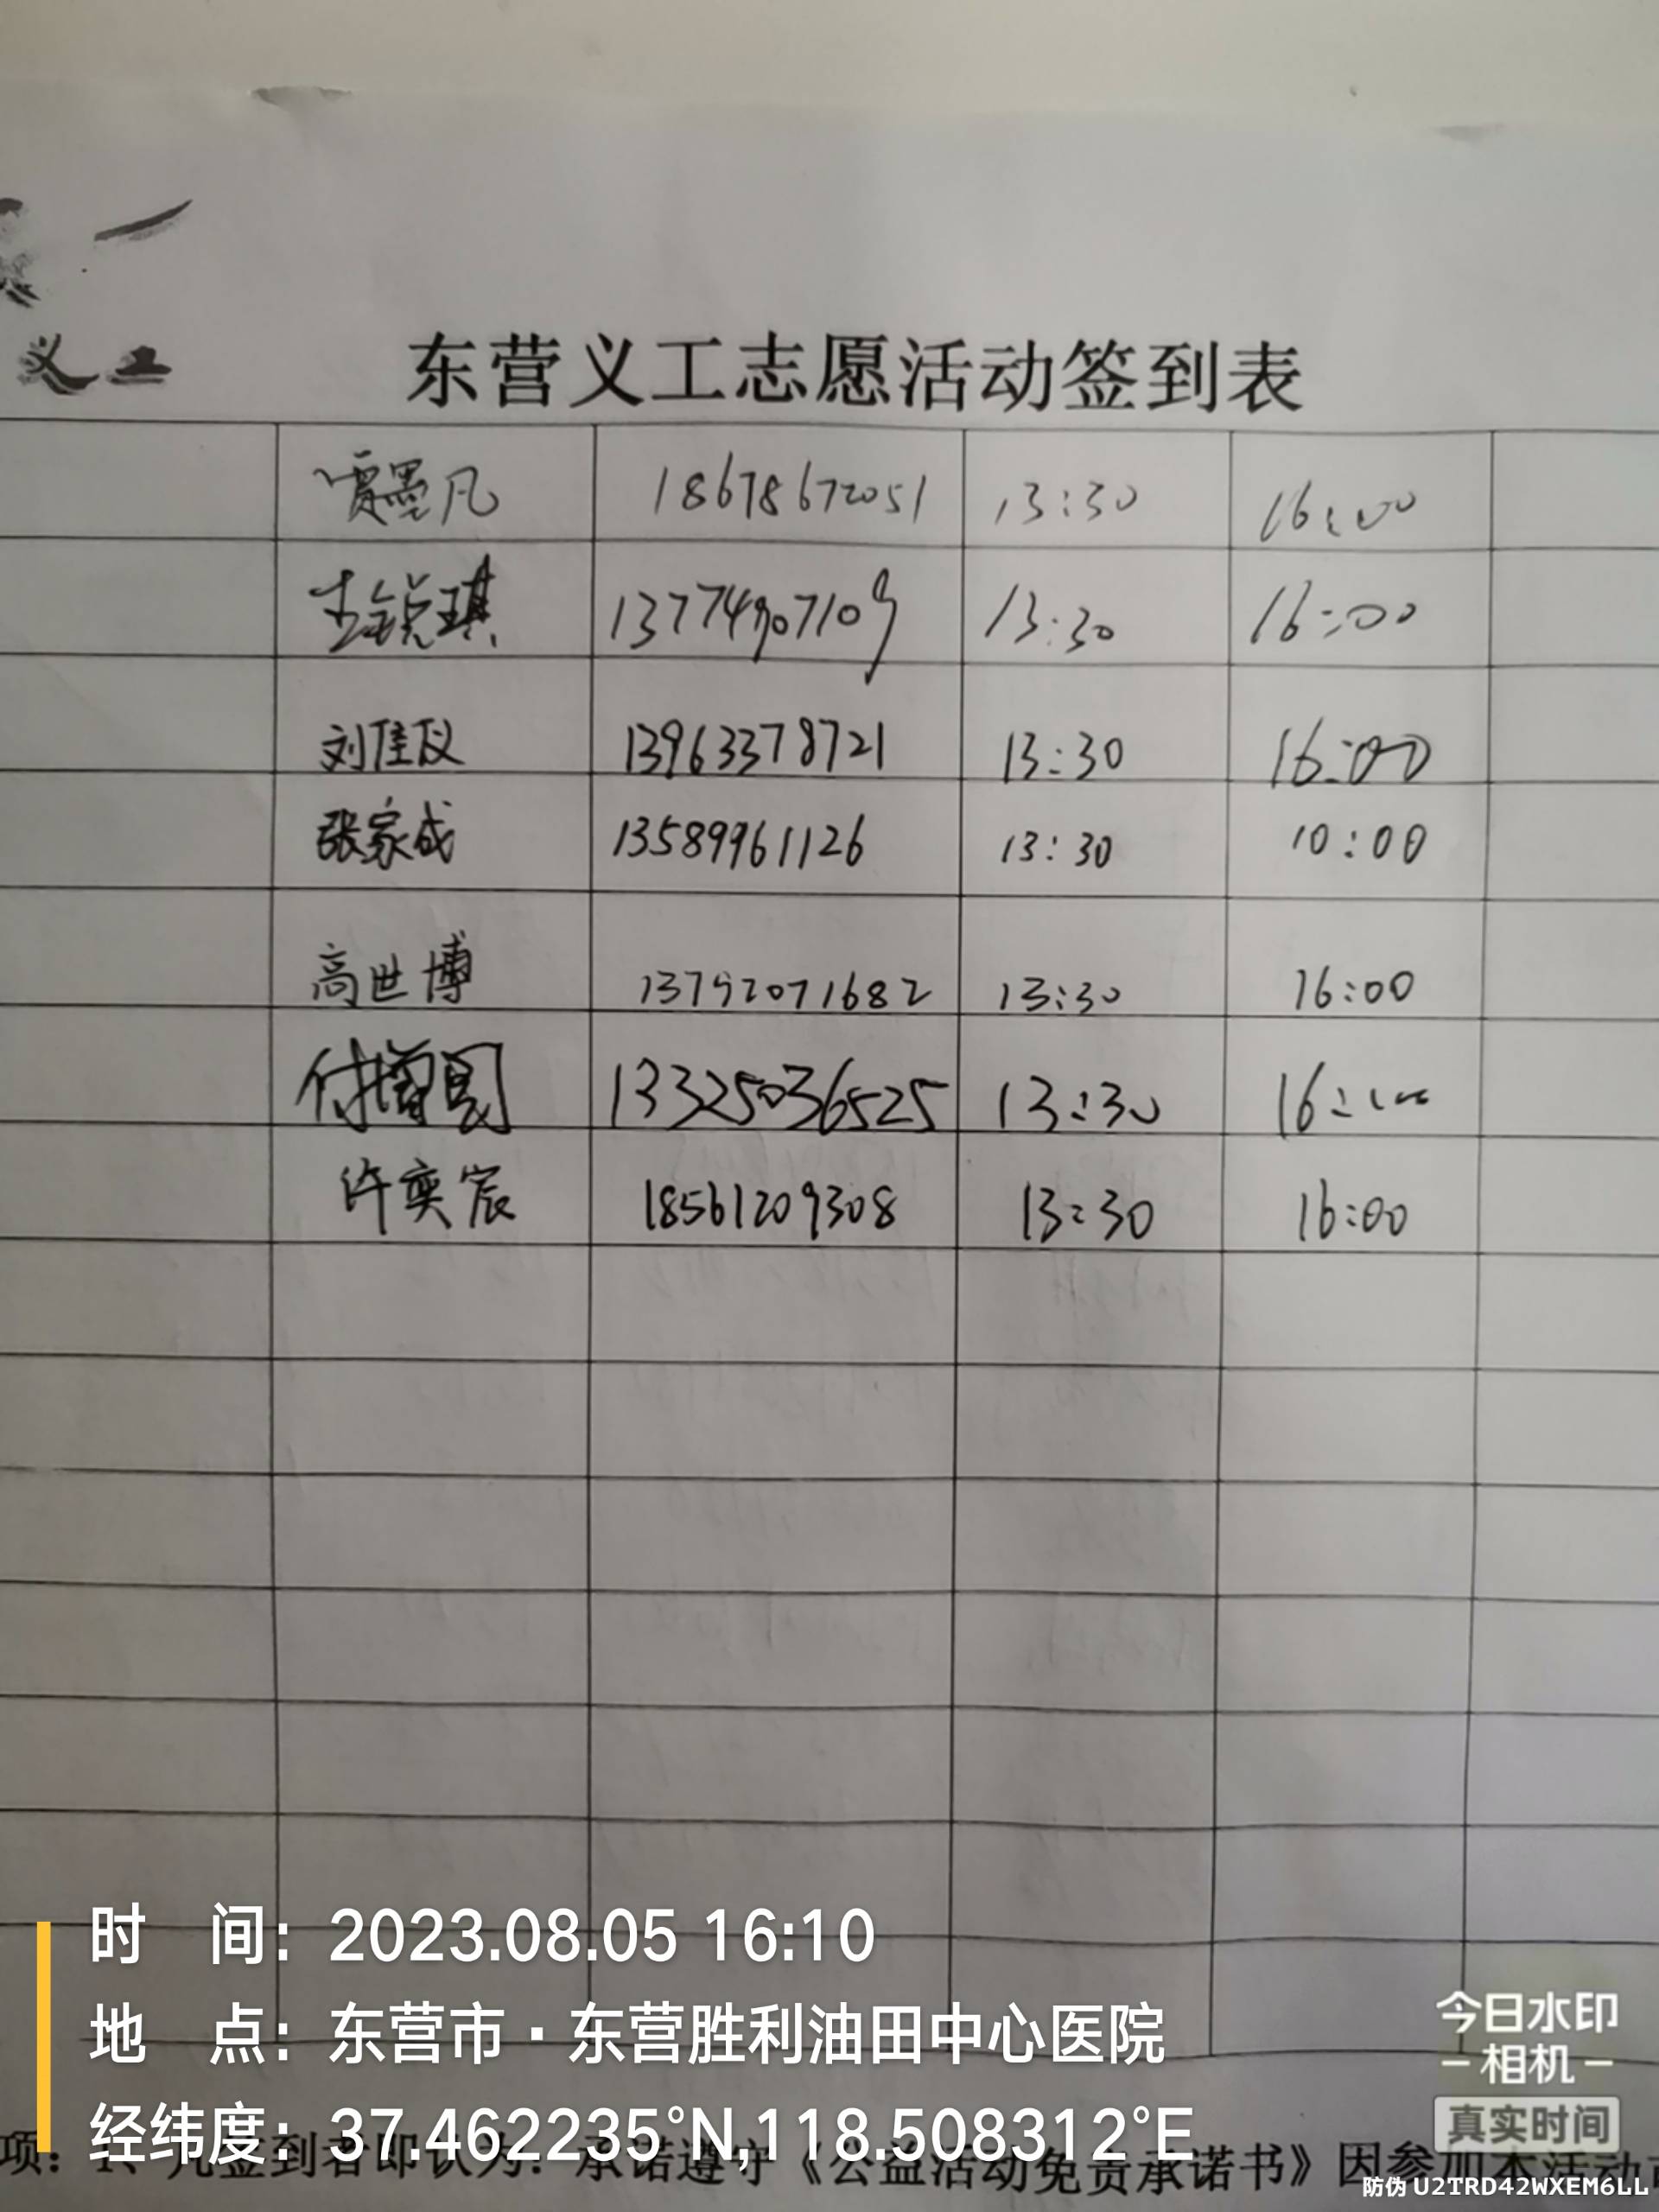 义工
东营义工志愿活动签到表
贾墨凡 18678672051 13:30 16:00
王锐琪 13:30 16:00
刘佳仪 13963378721 13:30 16:00
张家成 13589961126 13:30 10:00
高世博 13792071682 13:30 16:00
付增国 13325036525 13:30 16:00
许奕宸 18561209308 13:30 16:00
时 间: 2023.08.05 16:10
地 点: 东营市·东营胜利油田中心医院
经纬度: 37.462235°N,118.508312°E
项: 1、凡签到者即认为: 承诺遵守《公益活动免责承诺书》因参加本活动
今日水印
相机
真实时间
防伪 U2TRD42WXEM6LL